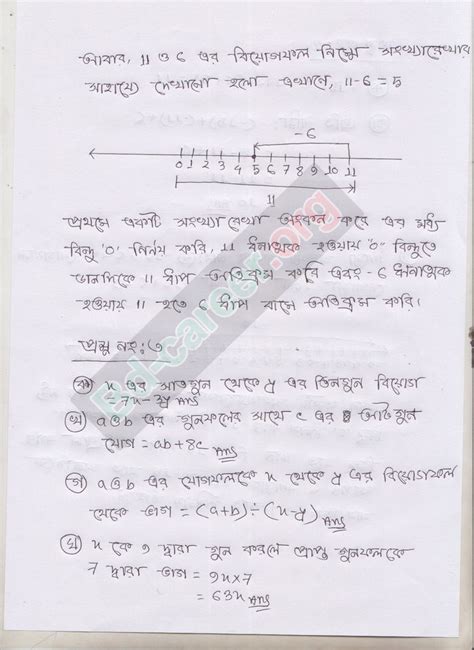 আবার, 11 ও 6 এর বিয়োগফল নিম্নে সংখ্যারেখার
সাহায্যে দেখানো হলো এখানে, 11-6 = 5
-6
0 1 2 3 4 5 6 7 8 9 10 11
11
প্রথমে একটি সংখ্যারেখা অংকন করে এর মধ্য
বিন্দু '0' নির্ণয় করি, 11 ধনাত্মক হওয়ায় '0' বিন্দুতে
ডানদিকে 11 ধাপ অতিক্রম করি এবং -6 ঋনাত্মক
হওয়ায় 11 হতে 6 ধাপ বামে অতিক্রম করি।
প্রশ্ন নং: ৩
ক) x এর সাতগুন থেকে y এর তিনগুন বিয়োগ
= 7x - 3y
খ) a ও b এর গুনফলের সাথে c এর আটগুন
যোগ = ab + 8c Ans
গ) a ও b এর যোগফলকে x থেকে y এর বিয়োগফল
থেকে ভাগ = (a+b) ÷ (x-y) Ans
ঘ) x কে 9 দ্বারা গুন করলে প্রাপ্ত গুনফলকে
7 দ্বারা ভাগ = 9x × 7
= 63x Ans
Ed-career.org